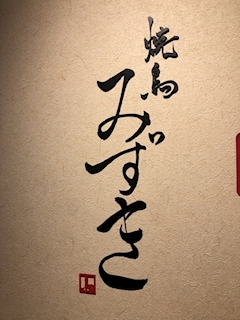 焼鳥
みずき